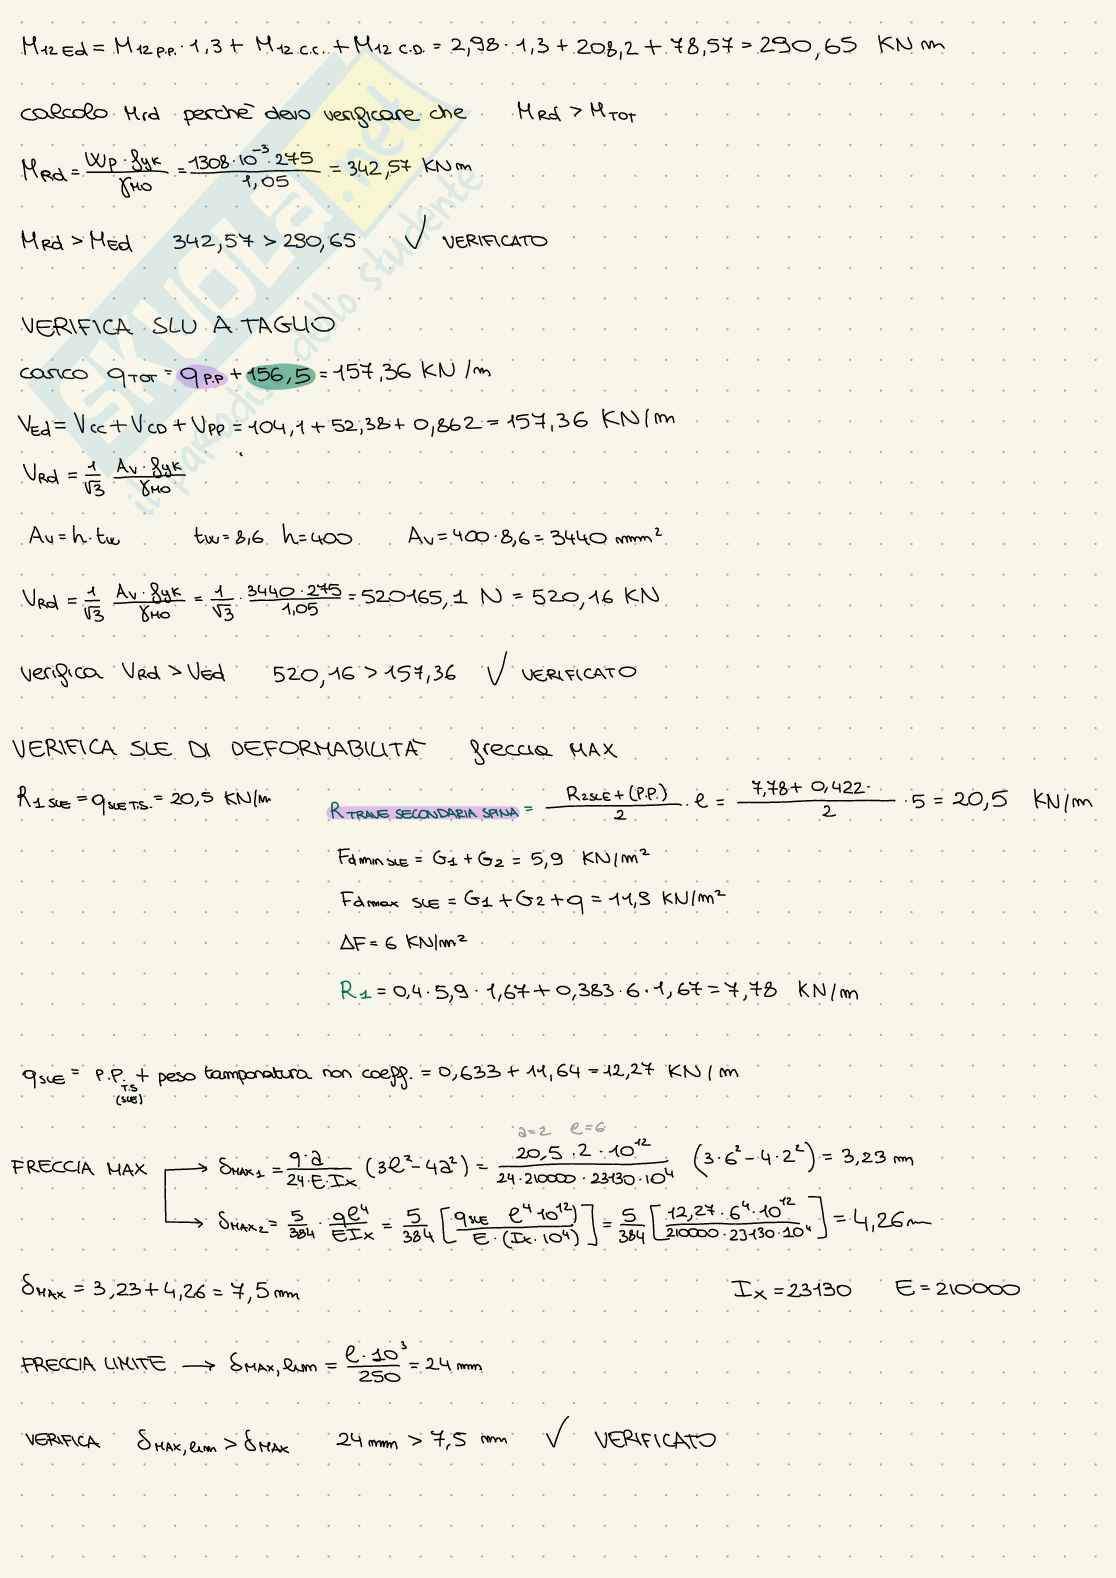 M12 Ed = M12 P.P. · 1,3 + M12 C.C. + M12 C.D. = 2,98 · 1,3 + 208,2 + 78,57 = 290,65 KN m
calcolo Mrd perchè devo verificare che MRd > MTOT
MRd = Wp · fyk / γM0 = 1308 · 10⁻³ · 275 / 1,05 = 342,57 KN m
MRd > MEd 342,57 > 290,65 √ VERIFICATO
VERIFICA SLU A TAGLIO
carico qTOT = qP.P + 156,5 = 157,36 KN/m
VEd = VCC + VCD + VPP = 104,1 + 52,38 + 0,862 = 157,36 KN/m
VRd = 1/√3 Av · fyk / γM0
Av = h · tw tw = 8,6 h = 400 Av = 400 · 8,6 = 3440 mm²
VRd = 1/√3 Av · fyk / γM0 = 1/√3 · 3440 · 275 / 1,05 = 520165,1 N = 520,16 KN
verifica VRd > VEd 520,16 > 157,36 √ VERIFICATO
VERIFICA SLE DI DEFORMABILITÀ freccia MAX
R1 SLE = qSLE T.S. = 20,5 KN/m
R TRAVE SECONDARIA SPINA = R2SLE + (P.P.) / 2 · l = 7,78 + 0,422 · / 2 · 5 = 20,5 KN/m
Fdmin SLE = G1 + G2 = 5,9 KN/m²
Fdmax SLE = G1 + G2 + q = 11,9 KN/m²
ΔF = 6 KN/m²
R1 = 0,4 · 5,9 · 1,67 + 0,383 · 6 · 1,67 = 7,78 KN/m
qSLE = P.P. T.S (SLE) + peso tamponatura non coeff. = 0,633 + 11,64 = 12,27 KN/m
a=2 l=6
FRECCIA MAX → δMAX1 = q · a / 24 · E · Ix (3l² - 4a²) = 20,5 · 2 · 10¹² / 24 · 210000 · 23130 · 10⁴ (3 · 6² - 4 · 2²) = 3,23 mm
→ δMAX2 = 5/384 · ql⁴ / EIx = 5/384 [qSLE l⁴ 10¹²) / E · (Ix · 10⁴)] = 5/384 [12,27 · 6⁴ · 10¹² / 210000 · 23130 · 10⁴] = 4,26 m
δMAX = 3,23 + 4,26 = 7,5 mm Ix = 23130 E = 210000
FRECCIA LIMITE → δMAX, lim = l · 10³ / 250 = 24 mm
VERIFICA δMAX, lim > δMAX 24 mm > 7,5 mm √ VERIFICATO
SKUOLA.net
il paradiso dello studente